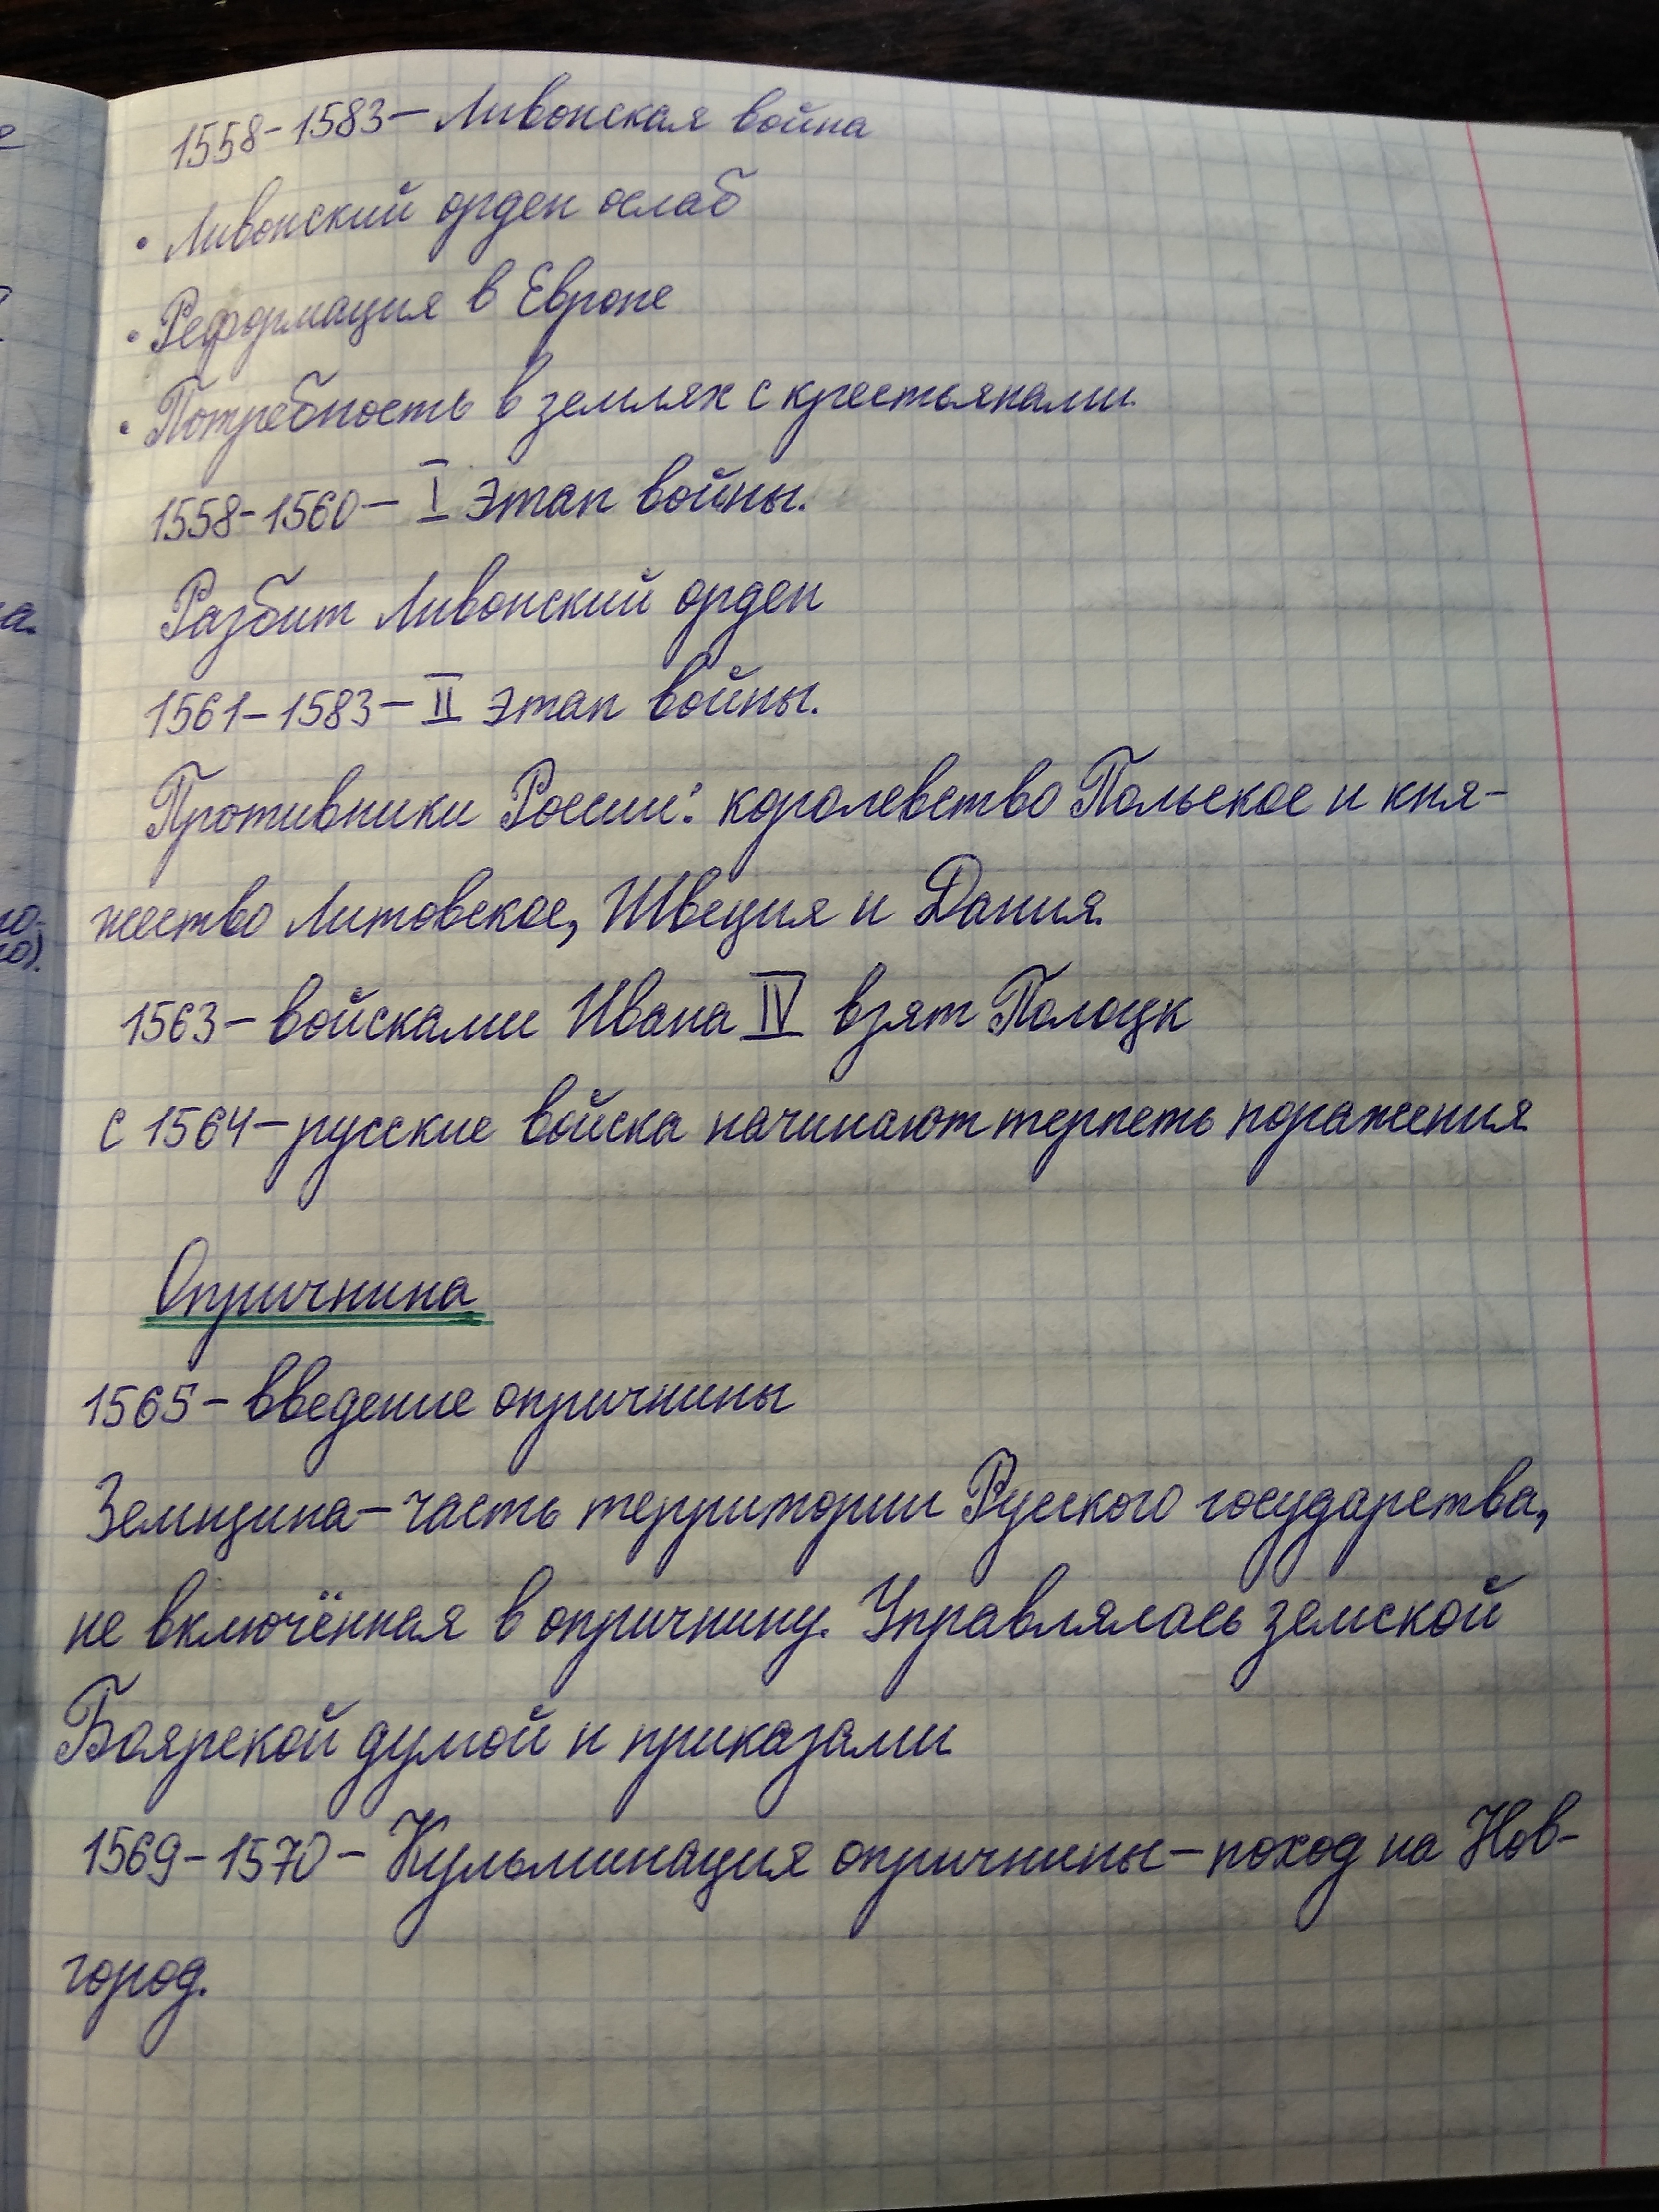 1558-1583 — Ливонская война
• Ливонский орден ослаб
• Реформация в Европе
• Потребность в землях с крестьянами.
1558-1560 — I этап войны.
Разбит Ливонский орден
1561-1583 — II этап войны.
Противники России: королевство Польское и кня-
жество Литовское, Швеция и Дания.
1563 — войсками Ивана IV взят Полоцк
с 1564 — русские войска начинают терпеть поражения.
Опричнина
1565 — введение опричнины
Земщина — часть территории Русского государства,
не включённая в опричнину. Управлялась земской
Боярской думой и приказами.
1569-1570 — Кульминация опричнины — поход на Нов-
город.